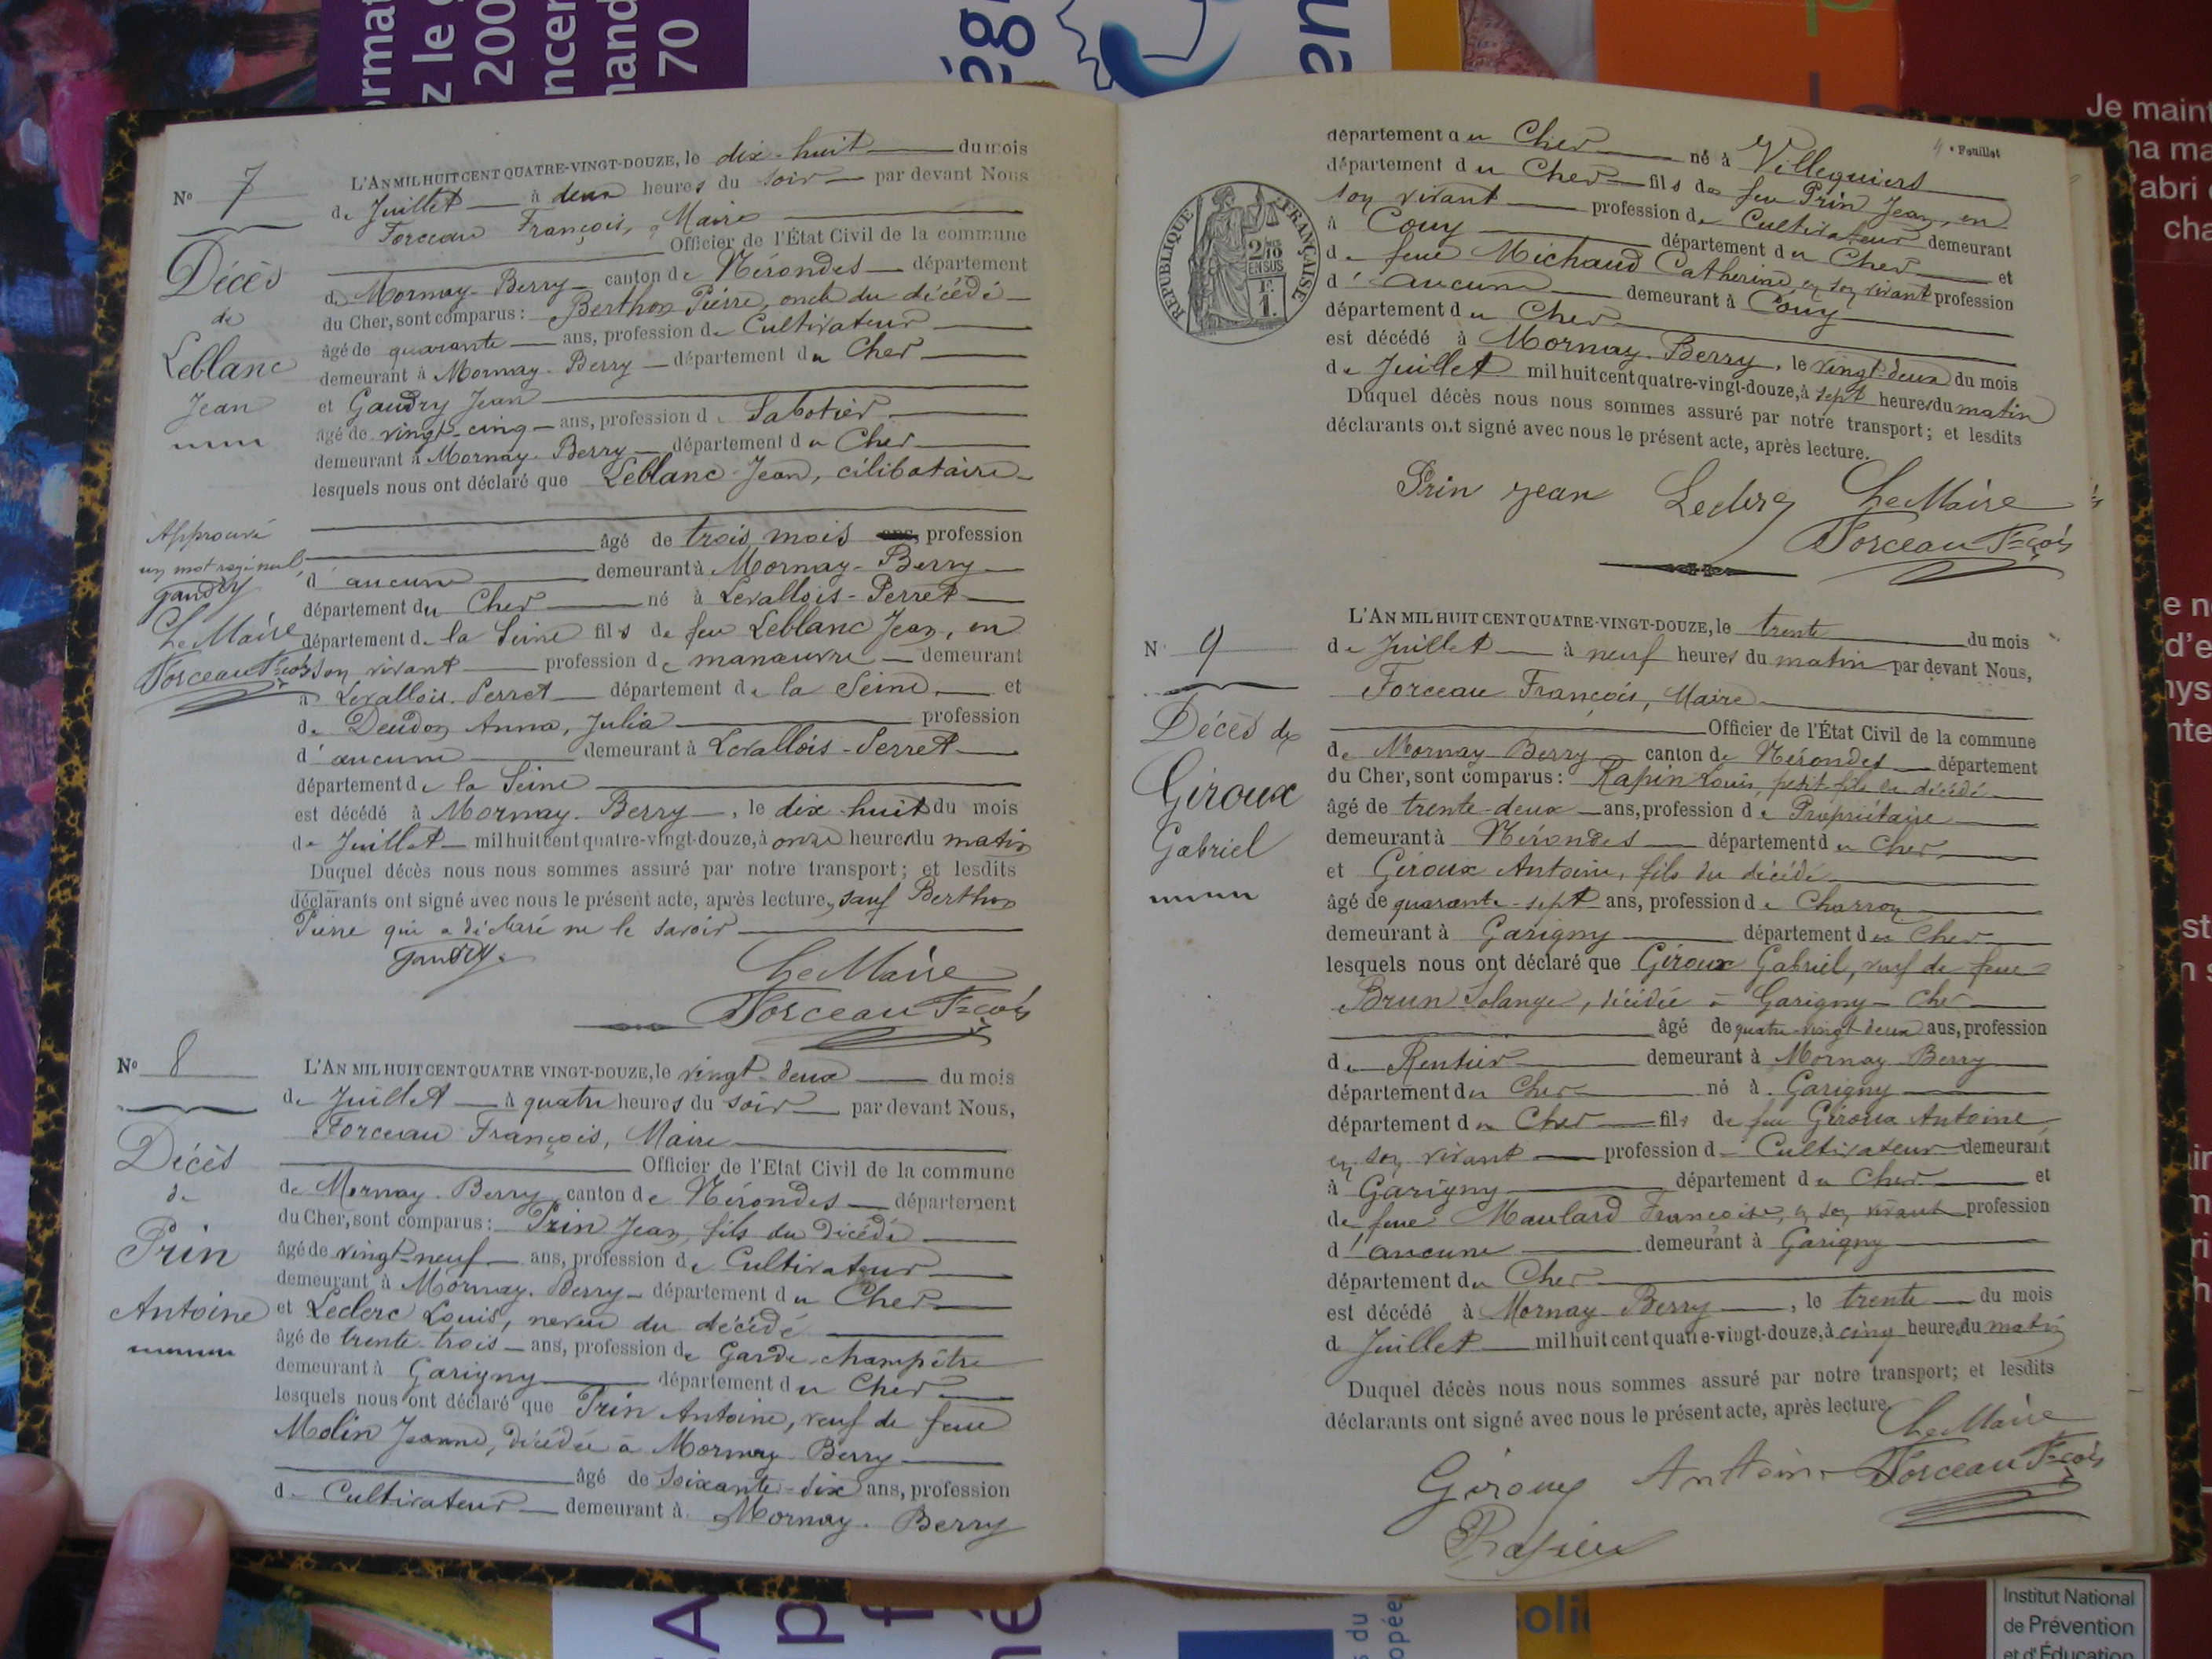 No 7
Décès
de
Leblanc
Jean
L'AN MIL HUIT CENT QUATRE-VINGT-DOUZE, le dix-huit du mois
de Juillet à deux heures du soir par devant Nous
Forceau François, Maire
Officier de l'État Civil de la commune
de Mornay-Berry canton de Nérondes département
du Cher, sont comparus: Berthon Pierre, oncle du décédé
âgé de quarante ans, profession de Cultivateur
demeurant à Mornay-Berry département du Cher
et Gaudry Jean
âgé de vingt-cinq ans, profession de Sabotier
demeurant à Mornay-Berry département du Cher
lesquels nous ont déclaré que Leblanc Jean, célibataire
âgé de trois mois ans, profession
d'aucune demeurant à Mornay-Berry
département du Cher né à Levallois-Perret
département de la Seine fils de feu Leblanc Jean, en
son vivant profession de manœuvre demeurant
à Levallois-Perret département de la Seine et
de Deudon Anna, Julia profession
d'aucune demeurant à Levallois-Perret
département de la Seine
est décédé à Mornay-Berry, le dix-huit du mois
de Juillet mil huit cent quatre-vingt-douze, à onze heures du matin
Duquel décès nous nous sommes assuré par notre transport; et lesdits
déclarants ont signé avec nous le présent acte, après lecture, sauf Berthon
Pierre qui a déclaré ne le savoir
Gaudry
Le Maire
Forceau F=çois
Approuvé
un mot rayé nul
Gaudry
Le Maire
Forceau F=çois
No 8
Décès
de
Prin
Antoine
L'AN MIL HUIT CENT QUATRE VINGT-DOUZE, le vingt-deux du mois
de Juillet à quatre heures du soir par devant Nous,
Forceau François, Maire
Officier de l'Etat Civil de la commune
de Mornay-Berry canton de Nérondes département
du Cher, sont comparus: Prin Jean, fils du décédé
âgé de vingt-neuf ans, profession de Cultivateur
demeurant à Mornay-Berry département du Cher
et Leclerc Louis, neveu du décédé
âgé de trente-trois ans, profession de Garde-champêtre
demeurant à Garigny département du Cher
lesquels nous ont déclaré que Prin Antoine, veuf de feue
Molin Jeanne, décédée à Mornay-Berry
âgé de soixante-dix ans, profession
de Cultivateur demeurant à Mornay-Berry
4e Feuillet
RÉPUBLIQUE FRANÇAISE
2/10
EN SUS
F.
1.
département du Cher né à Villequiers
département du Cher fils de feu Prin Jean, en
son vivant profession de Cultivateur demeurant
à Couy département du Cher et
de feue Michaud Catherine, en son vivant profession
d'aucune demeurant à Couy
département du Cher
est décédé à Mornay-Berry, le vingt-deux du mois
de Juillet mil huit cent quatre-vingt-douze, à sept heures du matin
Duquel décès nous nous sommes assuré par notre transport; et lesdits
déclarants ont signé avec nous le présent acte, après lecture.
Prin jean Leclerc Le Maire
Forceau F=çois
N 9
Décès de
Giroux
Gabriel
L'AN MIL HUIT CENT QUATRE-VINGT-DOUZE, le trente du mois
de Juillet à neuf heures du matin par devant Nous,
Forceau François, Maire
Officier de l'État Civil de la commune
de Mornay-Berry canton de Nérondes département
du Cher, sont comparus: Rapin Louis, petit-fils du décédé
âgé de trente-deux ans, profession de Propriétaire
demeurant à Nérondes département du Cher
et Giroux Antoine, fils du décédé
âgé de quarante-sept ans, profession de Charron
demeurant à Garigny département du Cher
lesquels nous ont déclaré que Giroux Gabriel, veuf de feue
Brun Solange, décédée à Garigny-Cher
âgé de quatre-vingt-deux ans, profession
de Rentier demeurant à Mornay-Berry
département du Cher né à Garigny
département du Cher fils de feu Giroux Antoine
en son vivant profession de Cultivateur demeurant
à Garigny département du Cher et
de feue Maulard Françoise, en son vivant profession
d'aucune demeurant à Garigny
département du Cher
est décédé à Mornay-Berry, le trente du mois
de Juillet mil huit cent quatre-vingt-douze, à cinq heures du matin
Duquel décès nous nous sommes assuré par notre transport; et lesdits
déclarants ont signé avec nous le présent acte, après lecture.
Le Maire
Giroux Antoine Forceau F=çois
Institut National
de Prévention
et d'Éducation